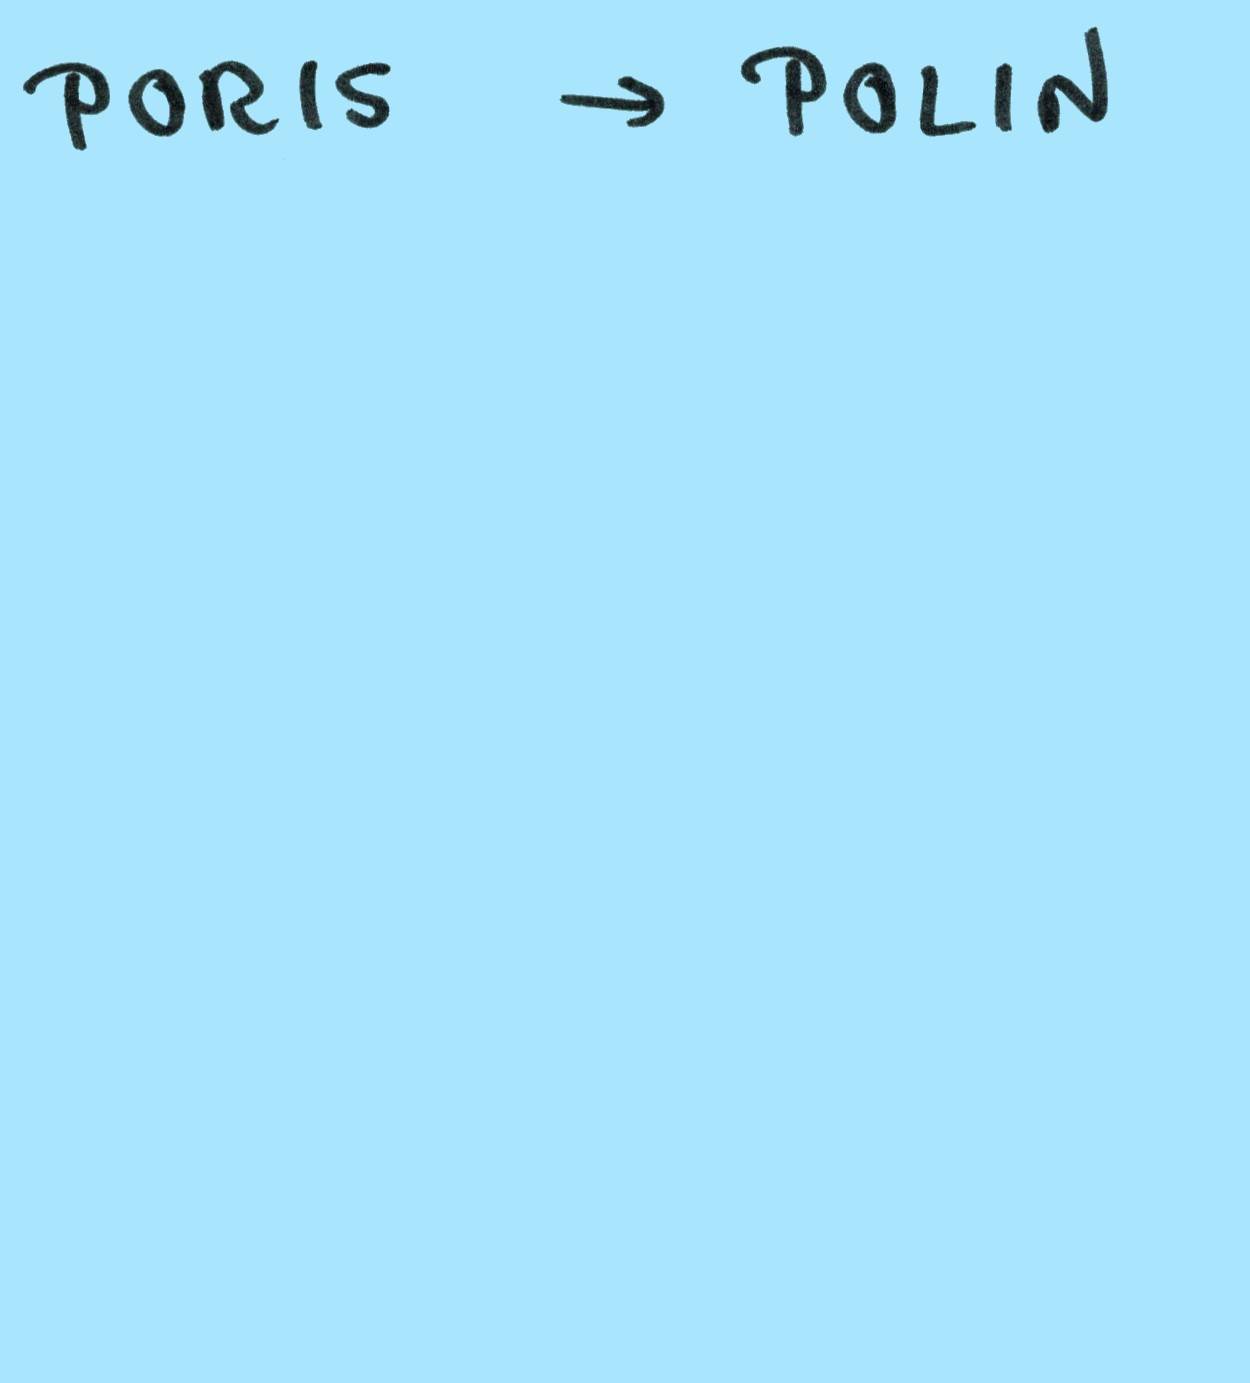 PORIS → POLIN